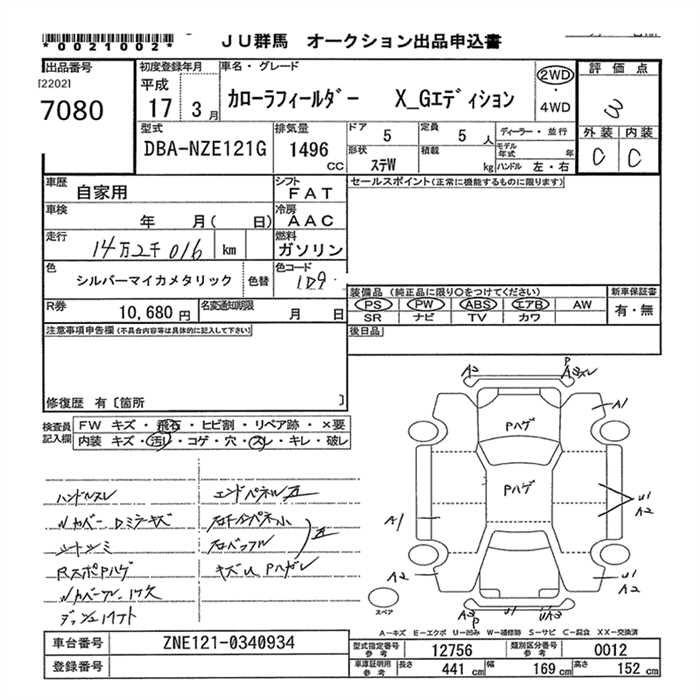 *0021002*
JU群馬 オークション出品申込書
出品番号
7080
初度登録年月
平成
17 3月
車名・グレード
カローラフィールダー X_Gエディション
2WD
・
4WD
評価点
3
外装 内装
C C
型式
DBA-NZE121G
排気量
1496
CC
ドア 5
定員 5 人
形状 ステW
積載 kg
ディーラー・並行
モデル年式 年
ハンドル 左・右
車歴
自家用
シフト
FAT
セールスポイント(正常に機能するものに限ります)
車検
年 月( 日)
冷房
AAC
走行
14万2千016 km
燃料
ガソリン
色
シルバーマイカメタリック
色替
色コード
1D9
装備品(純正品に限り○をつけてください)
新車保証書
PS PW ABS エアB AW
SR ナビ TV カワ
有・無
R券
10,680円
名変通知期限
月 日
注意事項申告欄(不具合内容等は具体的に記入して下さい)
後日品
修復歴 有〔箇所 〕
検査員記入欄
FW キズ・飛石・ヒビ割・リペア跡・×要
内装 キズ・汚レ・コゲ・穴・スレ・キレ・破レ
ハンドルスレ
エンドパネル
シートシミ
RスポPハゲ
A3
P
A1
Pハゲ
Pハゲ
A1
U1
A2
A2
U1
A2
スペア
A3
P
U1
UA3
A-キズ E-エクボ U-凹み W-補修跡 S-サビ C-腐食 XX-交換済
車台番号
ZNE121-0340934
登録番号
型式指定番号 参考
12756
類別区分番号 参考
0012
車庫証明用 参考
長さ 441 cm
幅 169 cm
高さ 152 cm